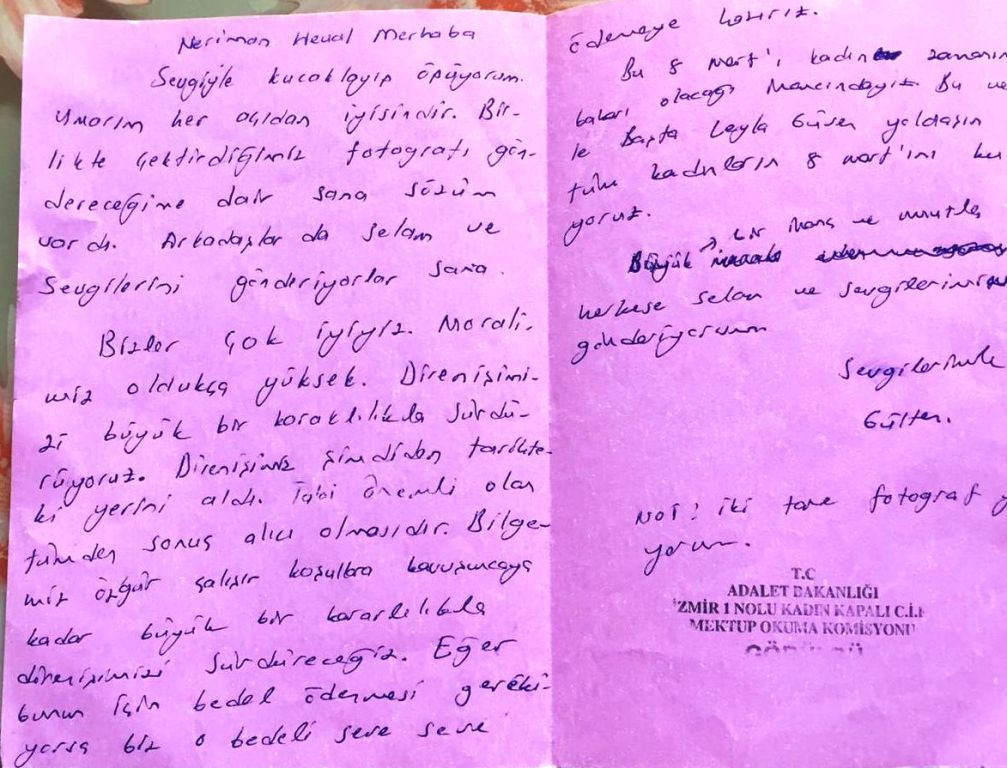 Neriman Heval Merhaba
Sevgiyle kucaklayıp öpüyorum.
Umarım her açıdan iyisindir. Bir-
likte çektirdiğimiz fotografı gön-
dereceğime dair sana sözüm
vardı. Arkadaşlar da selam ve
Sevgilerini gönderiyorlar sana.
Bizler çok iyiyiz. Morali-
miz oldukça yüksek. Direnişimi-
zi büyük bir kararlılıkla sürdü-
rüyoruz. Direnişimiz şimdiden tarihte-
ki yerini aldı. Tabi önemli olan
tümden sonuç alıcı olmasıdır. Bilge-
miz özgür çalışır koşullara kavuşuncaya
kadar büyük bir kararlılıkla
direnişimizi sürdüreceğiz. Eğer
bunun için bedel ödenmesi gereki-
yorsa biz o bedeli seve seve
ödemeye hazırız.
Bu 8 Mart'ı kadın zamanın
baharı olacağı inancındayız. Bu ve
le Başta Leyla Güven yoldaşın
tüm kadınların 8 Mart'ını ku
yoruz.
Büyük bir inanç ve umutla
herkese selam ve sevgilerimi
gönderiyorum
Sevgilerimle
Gülten.
NOT: iki tane fotograf g
yorum.
T.C
ADALET BAKANLIĞI
İZMİR 1 NOLU KADIN KAPALI C.İ.K
MEKTUP OKUMA KOMİSYONU
GÖRÜLDÜ